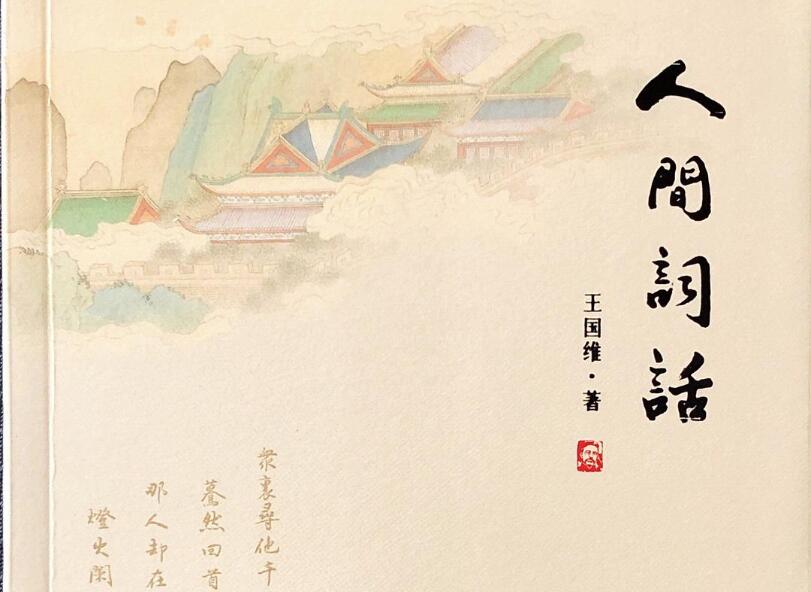 人間詞話
王国维·著
衆裏尋他千
驀然回首
那人却在
燈火闌